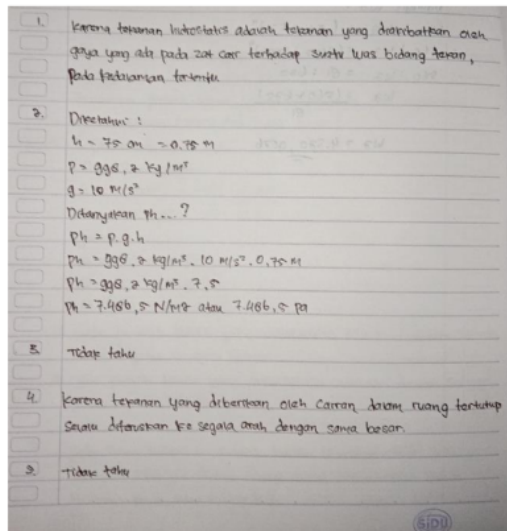 1. Karena tekanan hidrostatis adalah tekanan yang diakibatkan oleh
gaya yang ada pada zat cair terhadap suatu luas bidang tekan,
pada kedalaman tertentu
2. Diketahui :
h = 75 cm = 0,75 m
P = 998,2 kg/m³
g = 10 m/s²
Ditanyakan Ph...?
Ph = p.g.h
Ph = 998,2 kg/m³. 10 m/s². 0,75 M
Ph = 998,2 kg/m³. 7,5
Ph = 7.486,5 N/M2 atau 7.486,5 pa
3. Tidak tahu
4. Karena tekanan yang diberikan oleh cairan dalam ruang tertutup
selalu diteruskan ke segala arah dengan sama besar.
Tidak tahu
SIDU